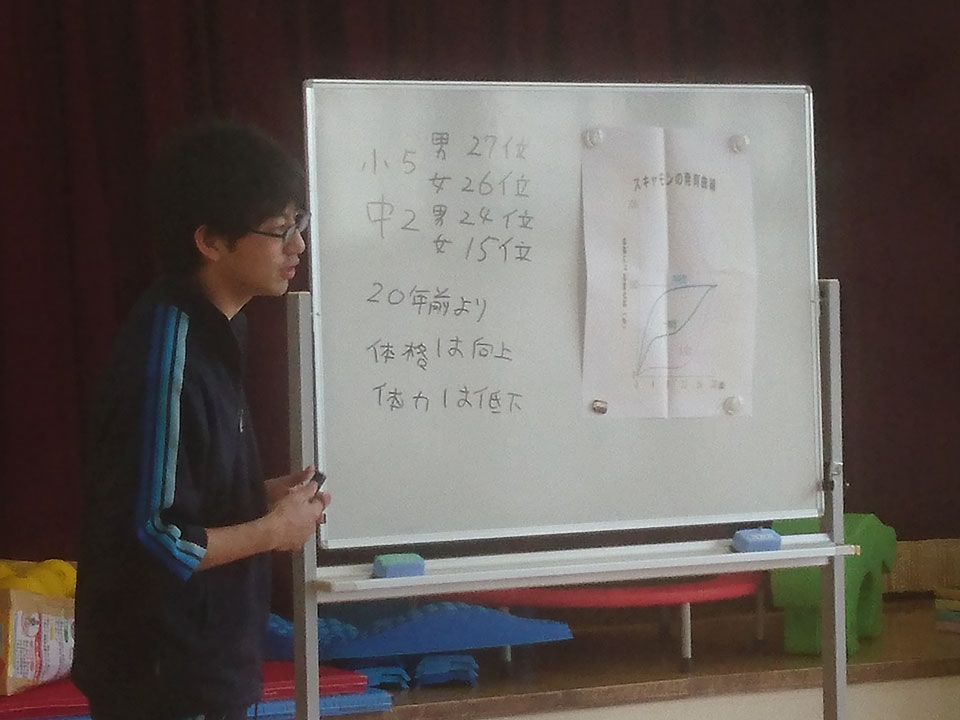 小5 男 27位
女 26位
中2 男 24位
女 15位
20年前より
体格は向上
体力は低下
スキャモンの発育曲線